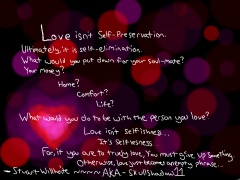 Love isn't Self-Preservation.
Ultimately, it is self-elimination.
What would you put down for your soul-mate?
Your money?
Home?
Comfort?
Life?
What would you do to be with the person you love?
Love isn't Selfishness...
It's Selflessness
For, if you are to truly love, You must give up Something,
Otherwise, love just becomes an empty phrase...
- Stuart Willhoite ~~~~~ AKA - Skullshadow11